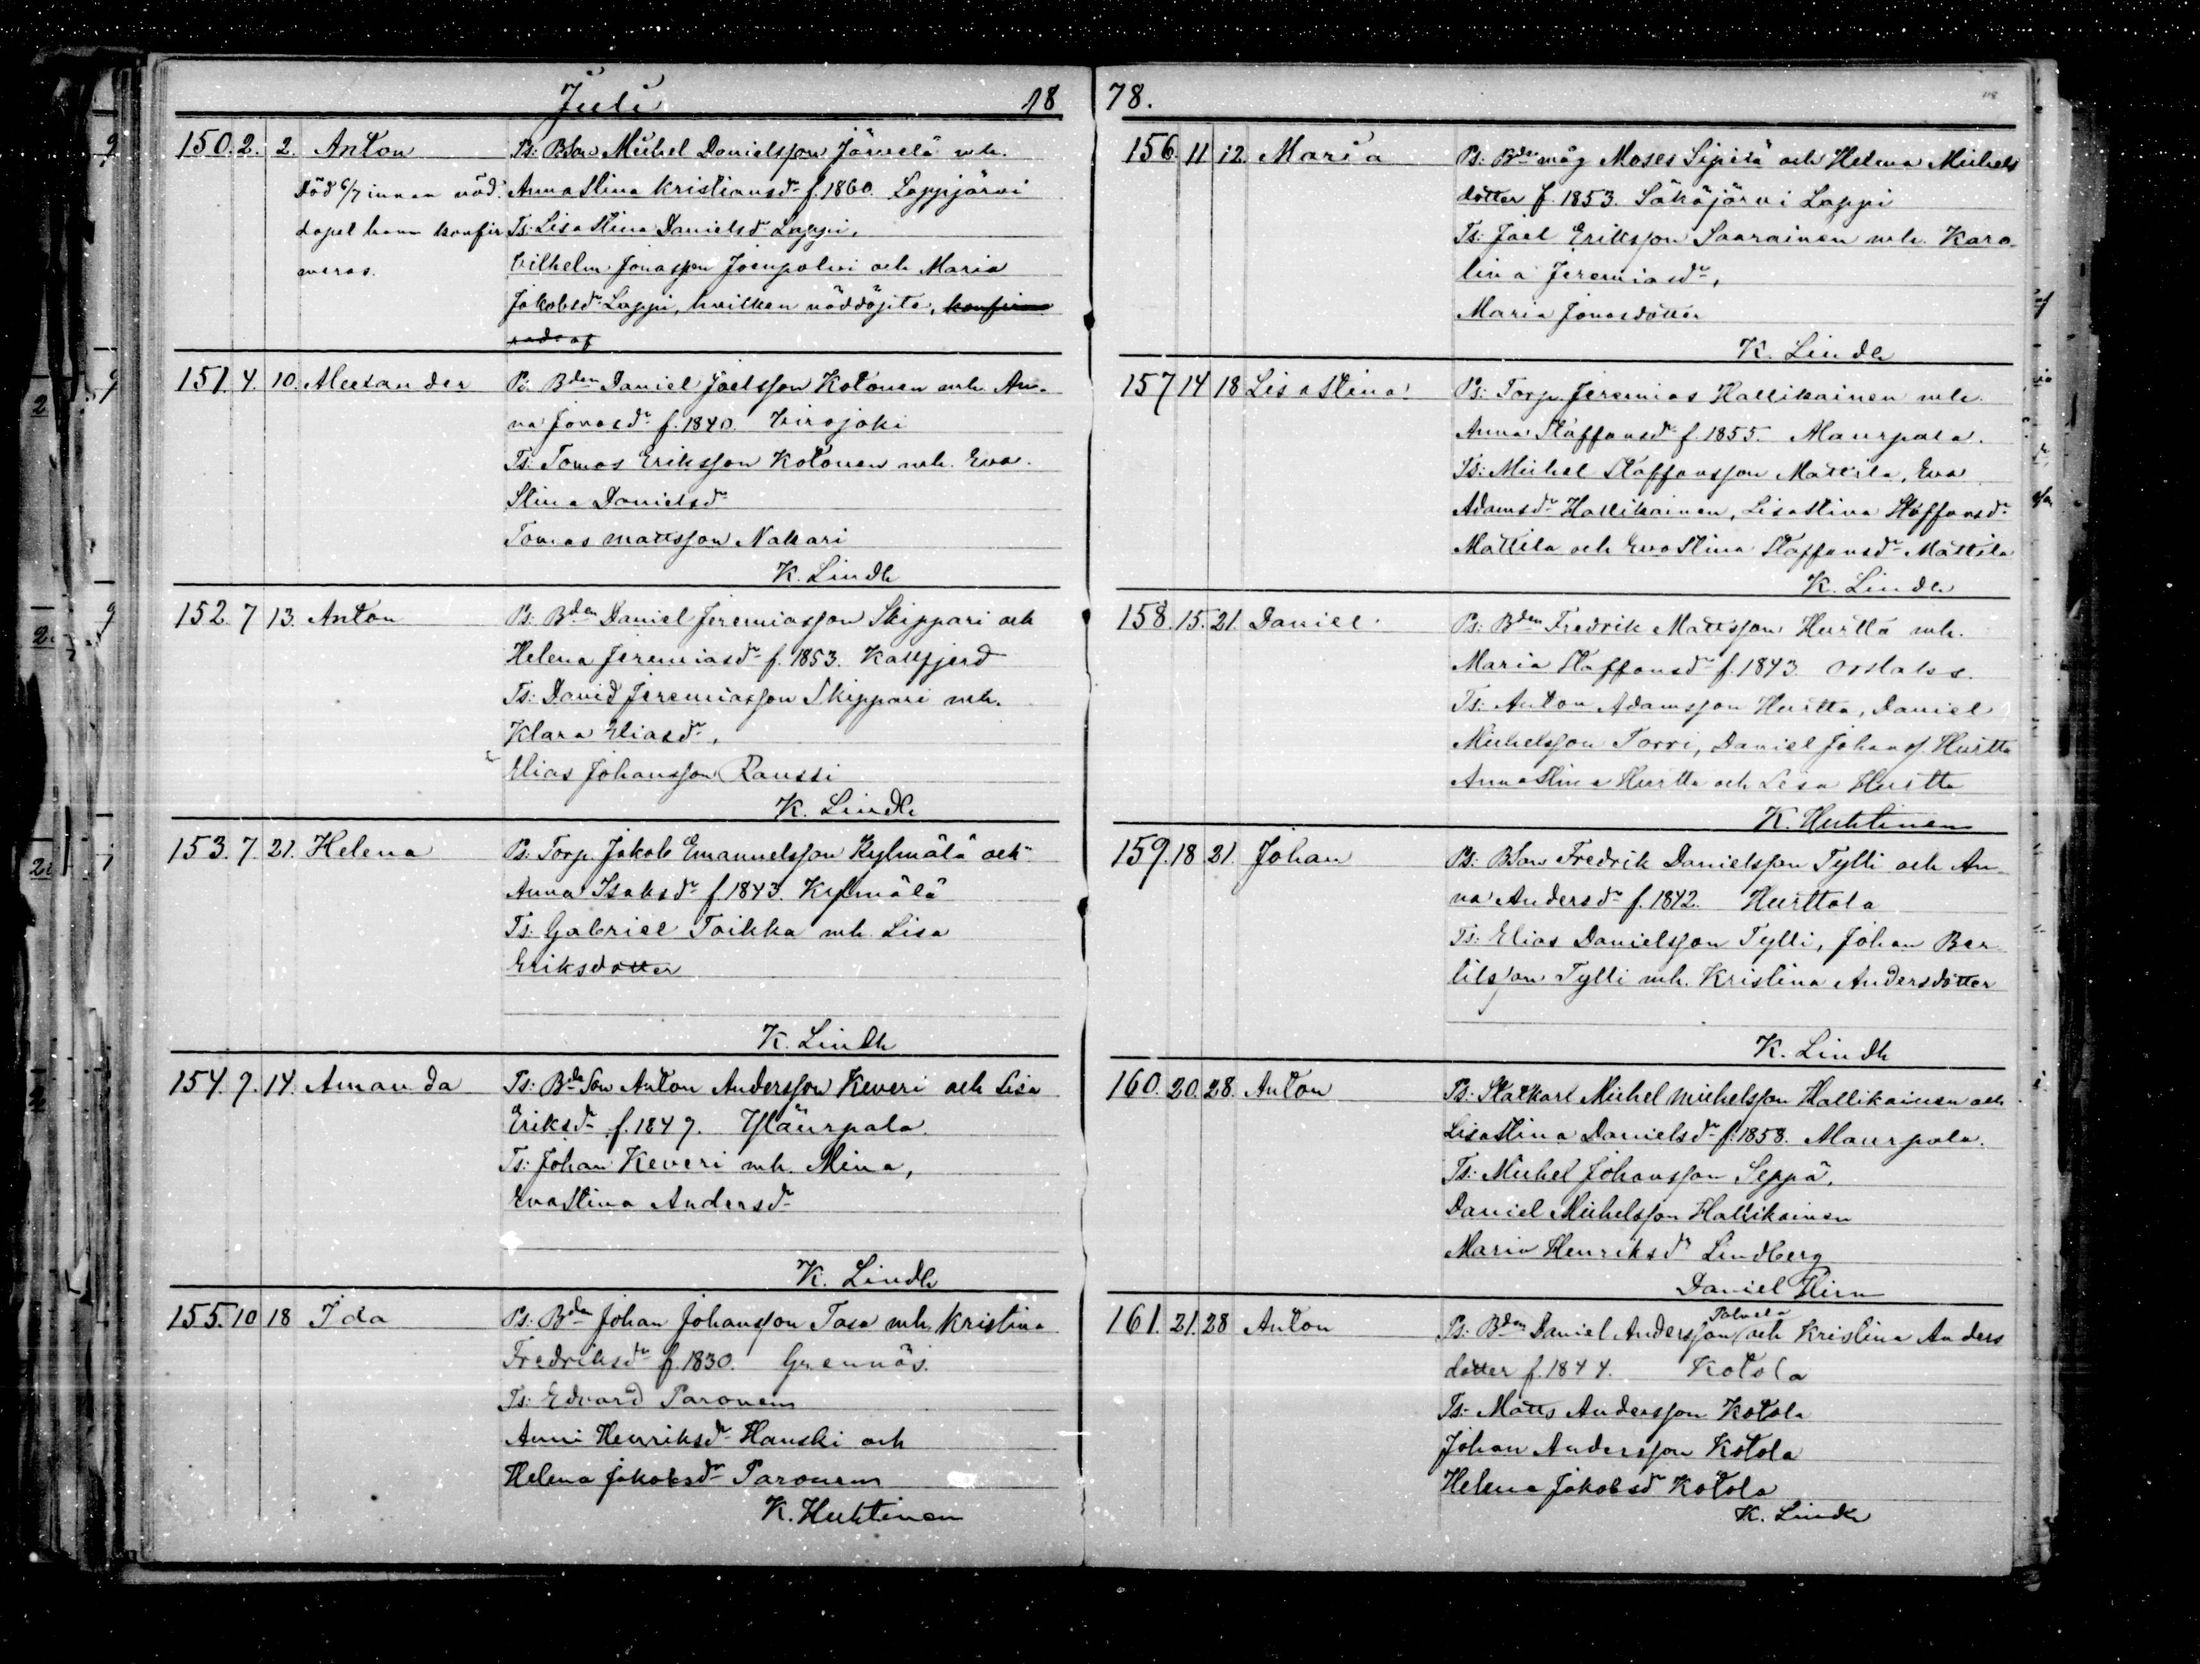 Juli 18
150. 2. 2. Anton Ps: BSon Michel Danielsson Järvelä mh.
Död 6/7 innan nöd- Annastina Kristiansdr f. 1860. Lappjärvi
dopet hann konfir Ts: Lisastina Danielsdr Lappi,
meras. Vilhelm Jonasson Joenpolvi och Maria
Jakobsdr Lappi, hvilken nöddöpte, konfir
rad af
151. 4. 10. Alexander Ps: Bden Daniel Joelsson Kotonen mh. An-
na Jonasdr f. 1840. Virojoki
Ts: Tomas Eriksson Kotonen mh. Eva
Stina Danielsdr
Tomas Mattsson Nakari
K. Lindh
152. 7 13. Anton Ps: Bden Daniel Jeremiasson Skippari och
Helena Jeremiasdr f. 1853. Kallfjerd
Ts: David Jeremiasson Skippari mh.
Klara Eliasdr,
Elias Johansson Ranssi
K. Lindh
153. 7. 21. Helena Ps: Torp. Jakob Emanuelsson Kylmälä och
Anna Isaksdr f. 1843. Kylmälä
Ts: Gabriel Toikka mh. Lisa
Eriksdotter
K. Lindh
154. 9. 14. Amanda Ts: Bde Son Anton Andersson Keveri och Lisa
Eriksdr f. 1849. Yläurpala
Ts: Johan Keveri mh. Mina,
Evastina Andersdr
K. Lindh
155. 10 18 Ida Ps: Bden Johan Johansson Tasa mh. Kristina
Fredriksdr f. 1830. Grennäs.
Ts: Edvard Paronen
Anni Henriksdr Hanski och
Helena Jakobsdr Paronen
K. Huhtinen
78.
156. 11 12. Maria Ps: Bdemåg Moses Sipilä och Helena Michels
dotter f. 1853. Säkäjärvi Lappi
Ts: Joel Eriksson Saarainen mh. Karo-
lina Jeremiasdr,
Maria Jonasdotter
K. Lindh
157 14 18 Lisastina Ps: Torp. Jeremias Hallikainen mh.
Anna Staffansdr f. 1855. Alaurpala.
Ts: Michel Staffansson Mattila, Eva
Adamsdr Hallikainen, Lisastina Staffansdr
Mattila och Evastina Staffansdr Mattila
K. Lindh
158. 15. 21. Daniel Ps: Bden Fredrik Mattsson Hurtta mh.
Maria Staffansdr f. 1843
Ts: Anton Adamsson Hurtta, Daniel
Michelsson Torri, Daniel Johanss. Hurtta
Annastina Hurtta och Lisa Hurtta
K. Huhtinen
159. 18 21. Johan Ps: BSon Fredrik Danielsson Tylli och An-
na Andersdr f. 1842. Hurttala
Ts: Elias Danielsson Tylli, Johan Ber-
tilsson Tylli mh. Kristina Andersdotter
K. Lindh
160. 20. 28. Anton Ps: Statkarl Michel Michelsson Hallikainen och
Lisastina Danielsdr f. 1858. Alaurpala.
Ts: Michel Johansson Seppä,
Daniel Michelsson Hallikainen
Maria Henriksdr Lindberg
Daniel Hirn
161. 21. 28 Anton Ps: Bden Daniel Andersson och Kristina Anders
dotter f. 1844. Kotola
Ts: Matts Andersson Kotola
Johan Andersson Kotola
Helena Jakobsdr Kotola
K. Lindh